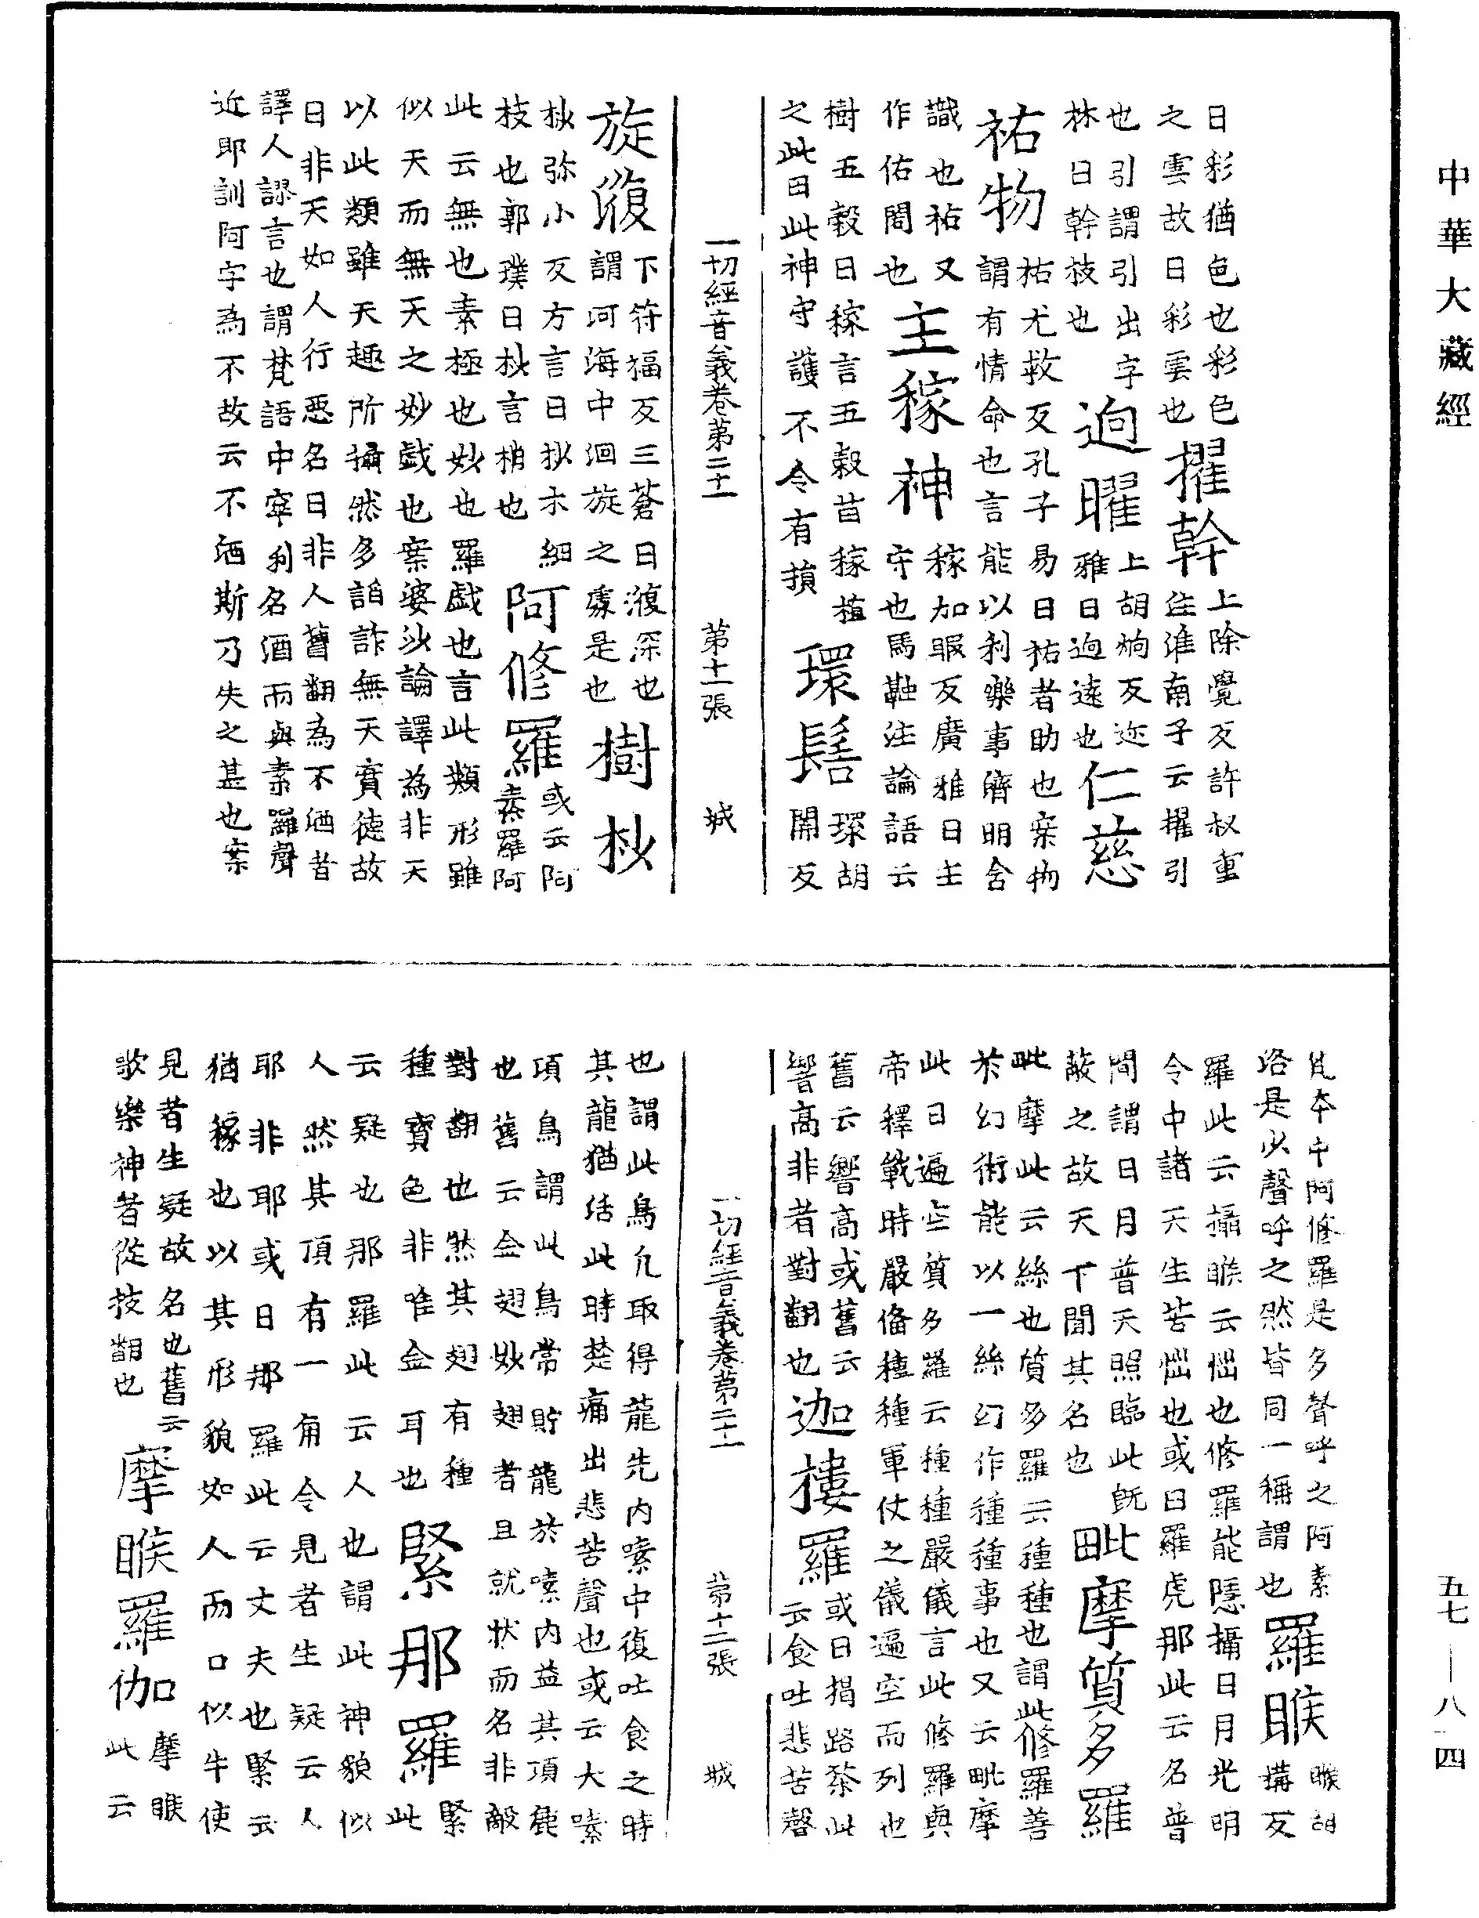 中華大藏經
日彩猶色也彩色
之雲故日彩雲也擢幹上除覺反許叔重
也引謂引出字迥曜上胡炯反迩
林日幹枝也
雅日迥遠也仁慈
祐物祐尤救反孔子易日祐者助也案物
謂有情命也言能以利樂事濟明舍
識也祐又
作佑閣也主稼神稼加暇反廣雅日主
守也馬融注論語云
樹五穀日稼言五穀苗稼植
之此日此神守護不令有損環髻環胡
關反
一切經音義卷第二十一 第十一張 城
旋澓下符福反三蒼日澓深也
謂河海中洄旋之處是也樹杪
杪弥小反方言日杪木細
枝也郭璞日杪言梢也阿修羅或云阿
素羅阿
此云無也素極也妙也羅戲也言此類形雖
似天而無天之妙戲也案婆沙論譯為非天
以此類雖天趣所攝然多諂詐無天實德故
日非天如人行惡名日非人舊翻為不酒者
譯人謬言也謂梵語中窣利名酒而與素羅聲
近耶訓阿字為不故云不酒斯乃失之甚也案
梵本中阿修羅是多聲呼之阿素
洛是少聲呼之然皆同一稱謂也羅睺睺胡
搆反
羅此云攝睺云㦬也修羅能隱攝日月光明
令中諸天生苦㦬也或日羅虎那此云名普
間謂日月普天照臨此既
蔽之故天下聞其名也毗摩質多羅
毗摩此云絲也質多羅云種種也謂此修羅善
於幻術能以一絲幻作種種事也又云毗摩
此日遍空質多羅云種種嚴儀言此修羅與
帝釋戰時嚴俻種種軍仗之儀遍空而列也
舊云響高或舊云
響高非者對翻也迦樓羅或日揭路荼此
云食吐悲苦聲
一切經音義卷第二十一 第十二張 城
也謂此鳥凡取得龍先內嗉中復吐食之時
其龍猶活此時楚痛出悲苦聲也或云大嗉
項鳥謂此鳥常貯龍於嗉內益其項麁
也舊云金翅妙翅者且就狀而名非敵
對翻也然其翅有種
種寶色非唯金耳也緊那羅緊
此
云疑也那羅此云人也謂此神貌似
人然其頂有一角令見者生疑云人
耶非耶或日那羅此云丈夫也緊云
猶稼也以其形貌如人而口似牛使
見者生疑故名也舊云
歌樂神者從技翻也摩睺羅伽摩睺
此云
五七—八一四